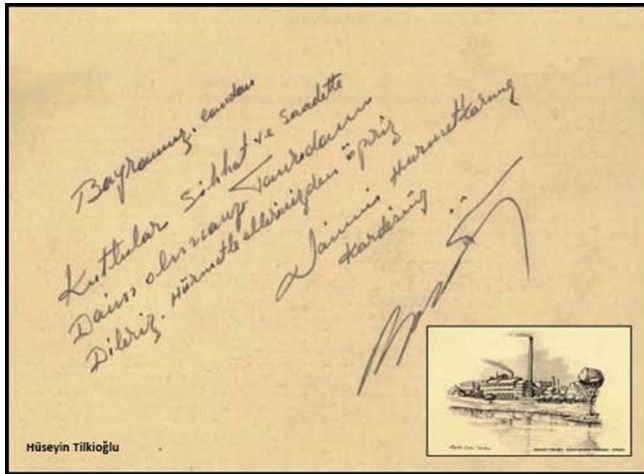 Bayramınız. candan
Kutlular Sıhhat ve Saadette
Daim olmanız Tanrıdan
Dileriz. Hürmetle ellerinizden öpriz
Daimi Hürmetkarınız
Kardeşiniz
Hüseyin Tilkioğlu